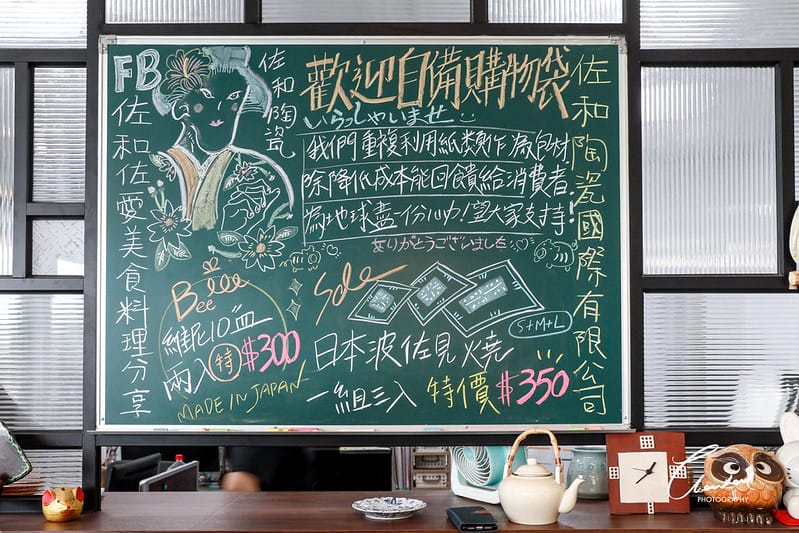 FB
佐和佐愛美食料理分享
佐和陶瓷
歡迎自備購物袋
いらっしゃいませ
我們重複利用紙類製作為包材
除降低成本能回饋給消費者.
為地球盡一份心力!望大家支持!
ありがとうございました
佐和陶瓷國際有限公司
Bee
10皿
兩入 特 $300
MADE IN JAPAN
Sale
S+M+L
日本波佐見燒
一組三入 特價 $350
PHOTOGRAPHY